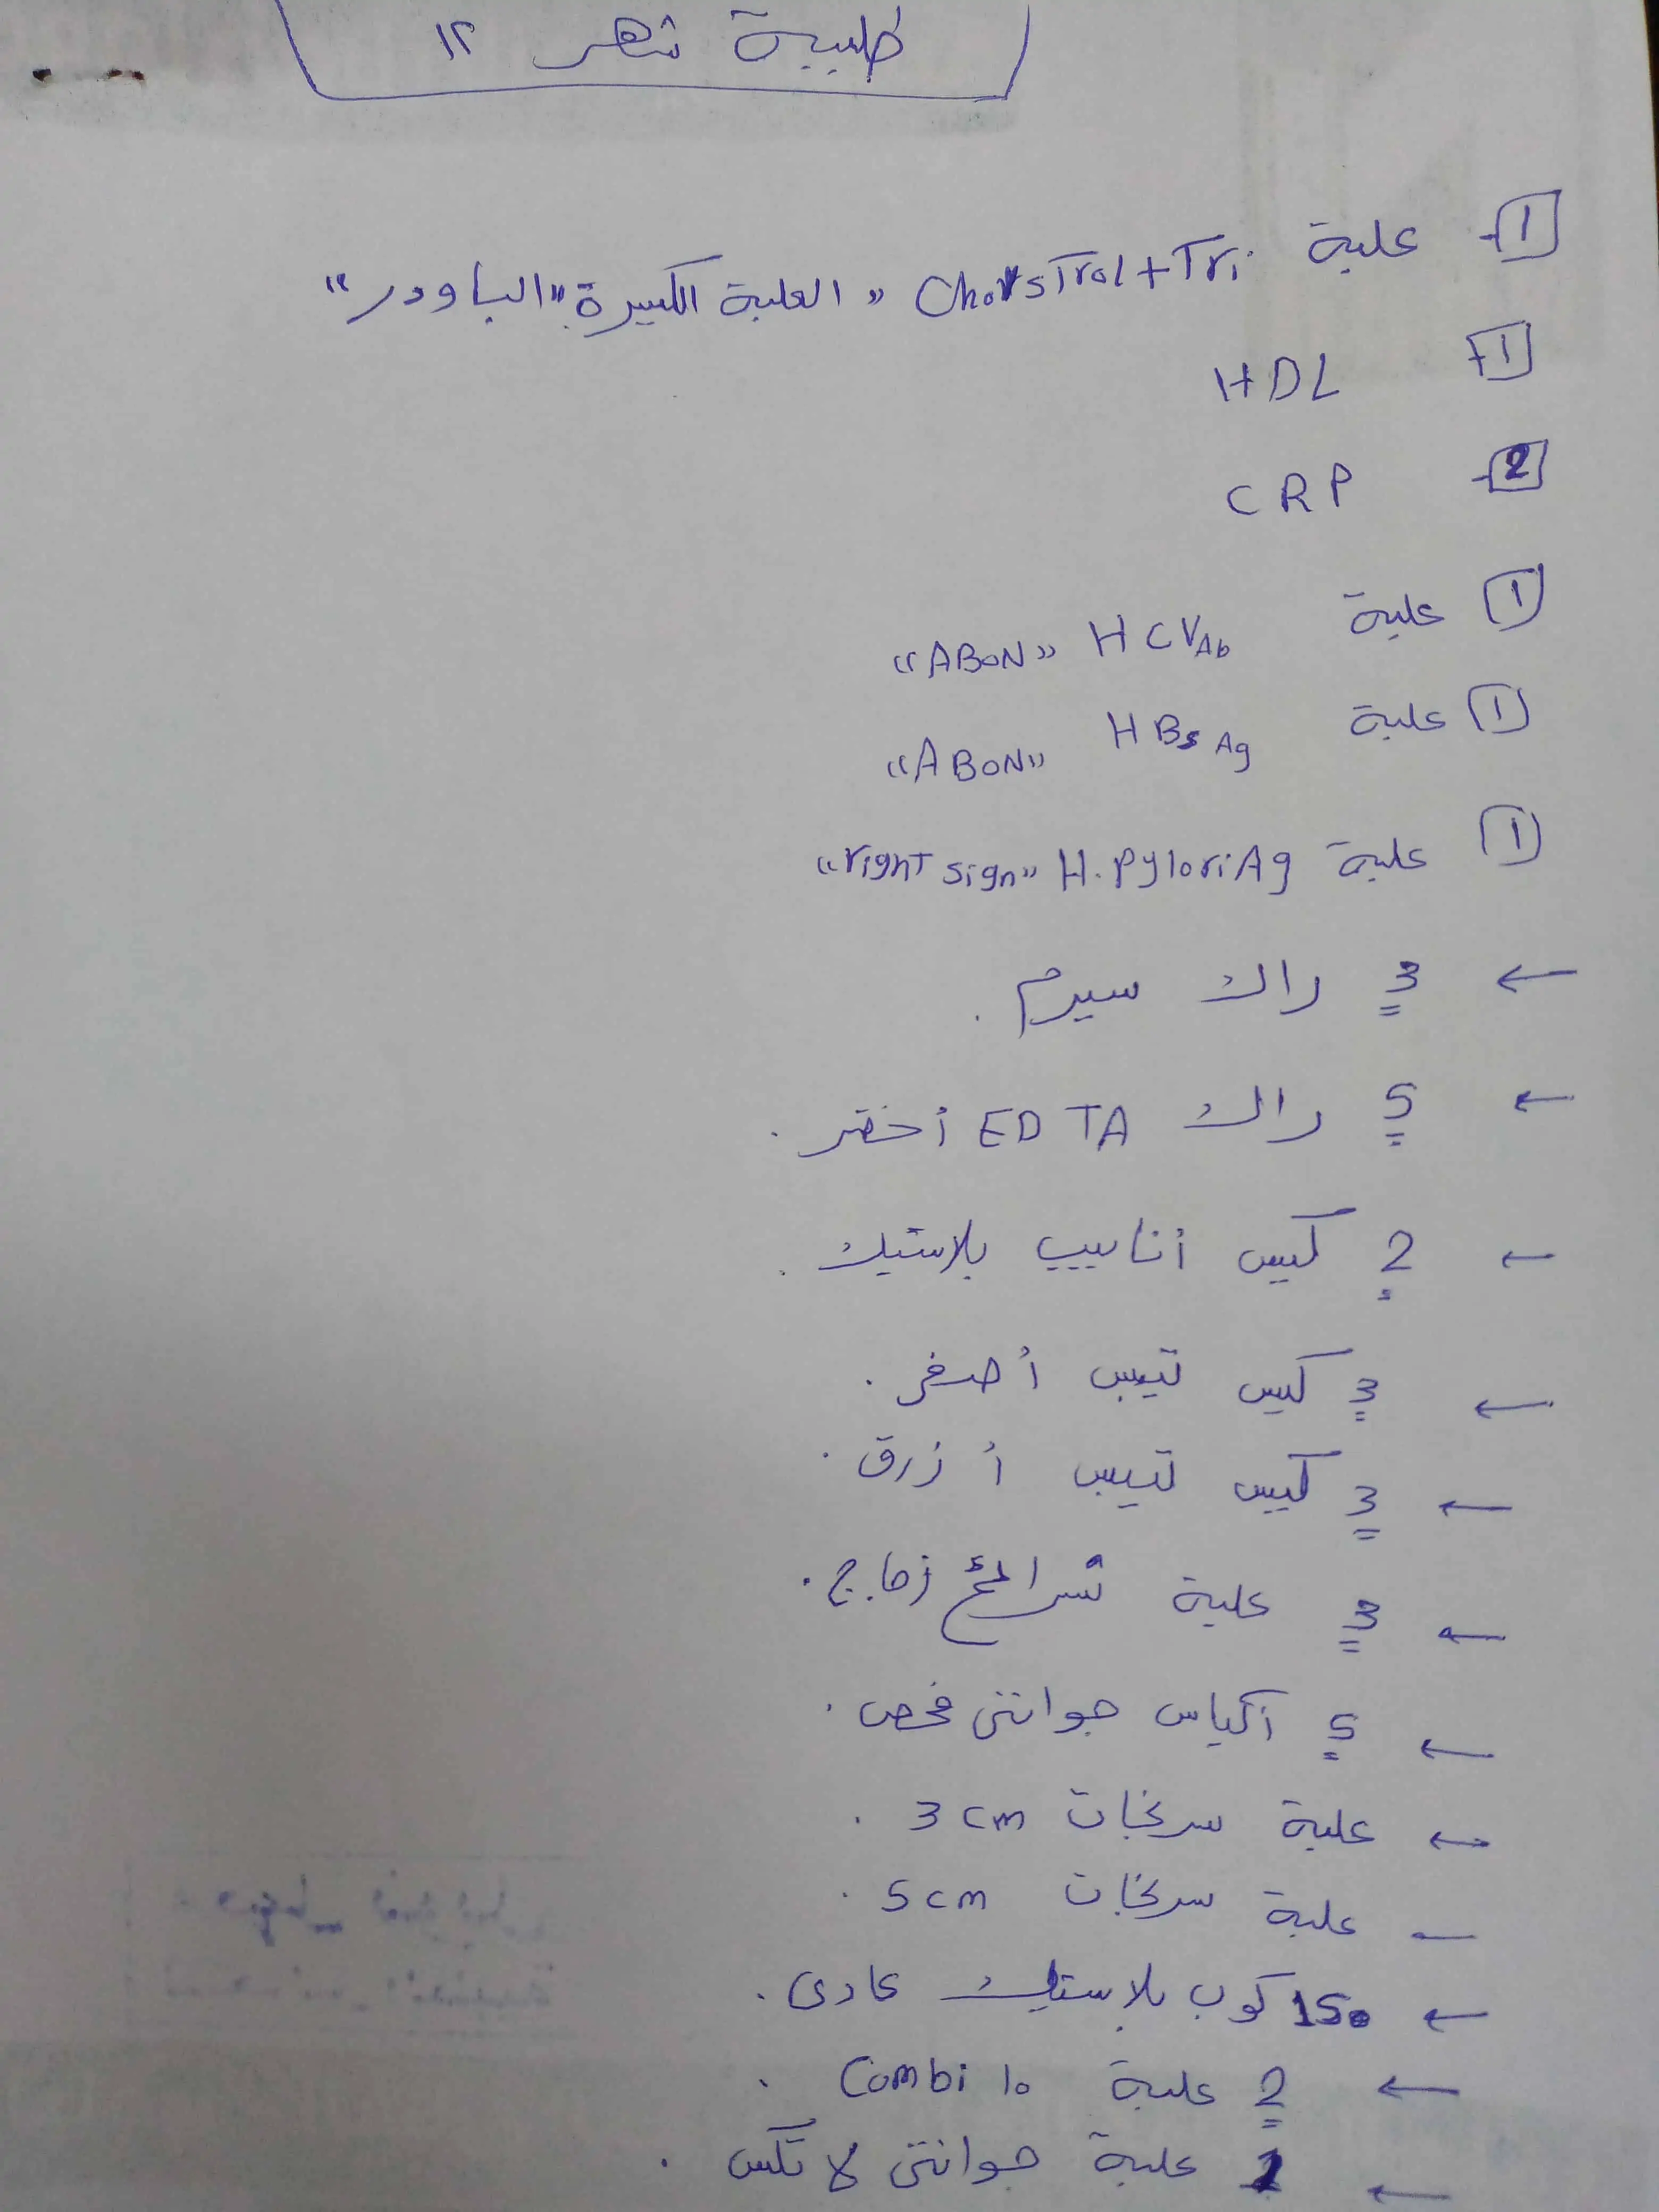 طلبية شهر ١٢
1- علبة Cholestrol + Tri «العلبة الكبيرة» "الباودر"
1- HDL
2- CRP
1 علبة HCV Ab «ABON»
1 علبة HBs Ag «ABON»
1 علبة H. Pylori Ag «right sign»
← 3 راك سيرم .
← 5 راك EDTA أخضر .
← 2 كيس أنابيب بلاستيك .
← 3 كيس تيبس أصفر .
← 3 كيس تيبس أزرق .
← 3 علبة شرائح زجاج .
← 5 أكياس جوانتى فحص .
← علبة سرنجات 3 cm .
– علبة سرنجات 5 cm .
← 150 كوب بلاستيك عادى .
← 2 علبة Combi 10 .
← 1 علبة جوانتى لاتكس .